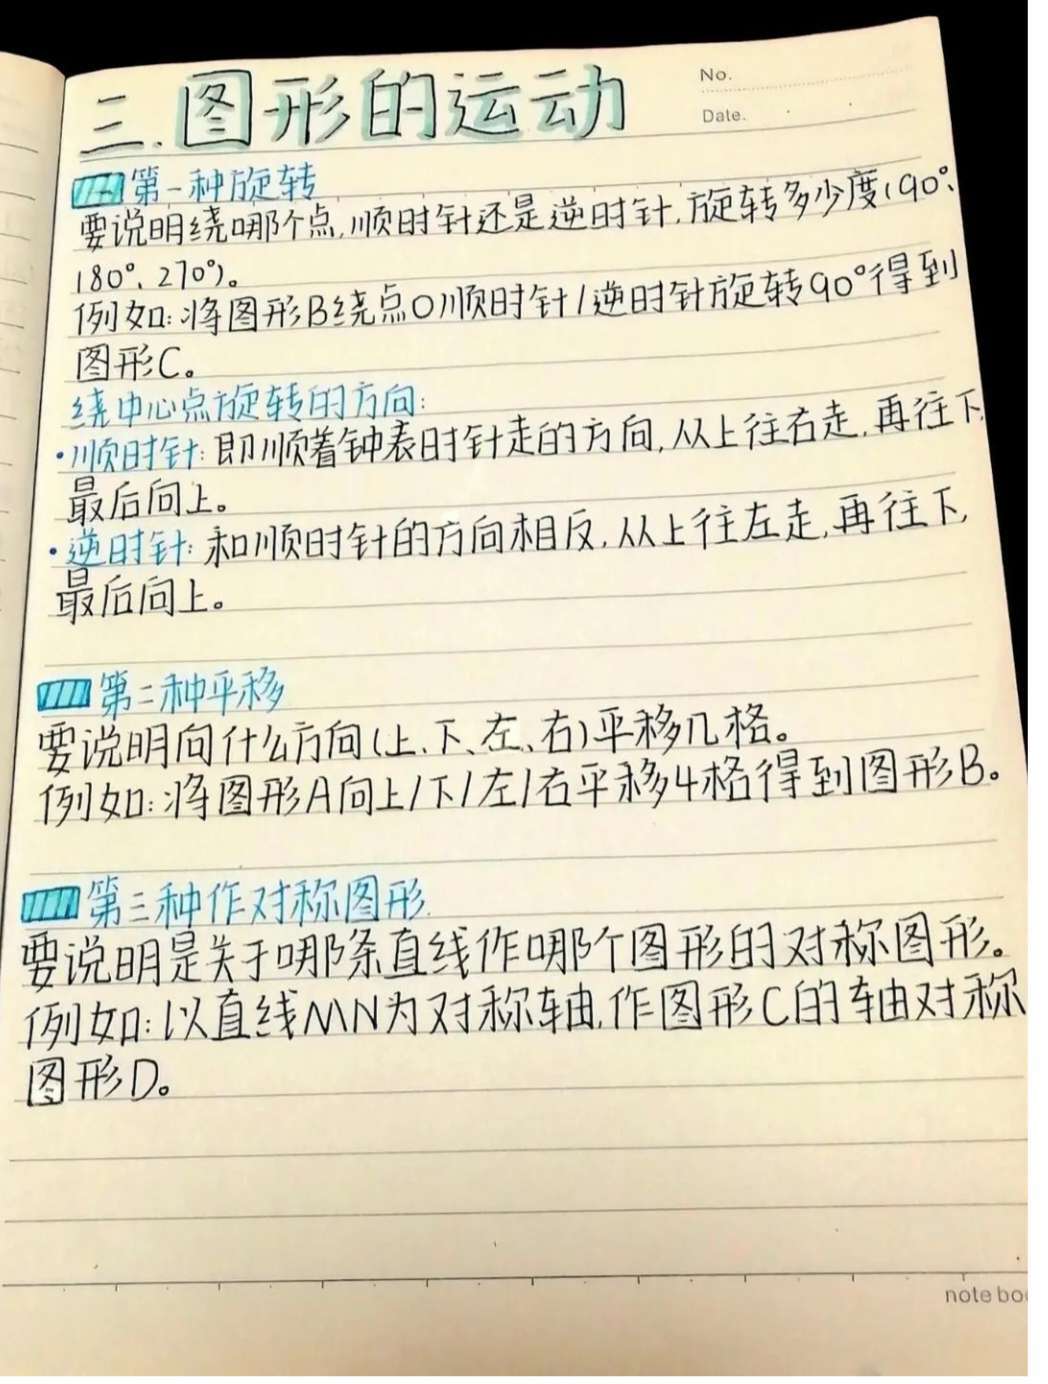 三.图形的运动
No.
Date.
第一种旋转
要说明绕哪个点,顺时针还是逆时针,旋转多少度(90°、
180°、270°)。
例如:将图形B绕点O顺时针/逆时针旋转90°得到
图形C。
绕中心点旋转的方向:
·顺时针:即顺着钟表时针走的方向,从上往右走,再往下,
最后向上。
·逆时针:和顺时针的方向相反,从上往左走,再往下,
最后向上。
第二种平移
要说明向什么方向(上、下、左、右)平移几格。
例如:将图形A向上/下/左/右平移4格得到图形B。
第三种作对称图形
要说明是关于哪条直线作哪个图形的对称图形。
例如:以直线MN为对称轴,作图形C的轴对称
图形D。
note bo